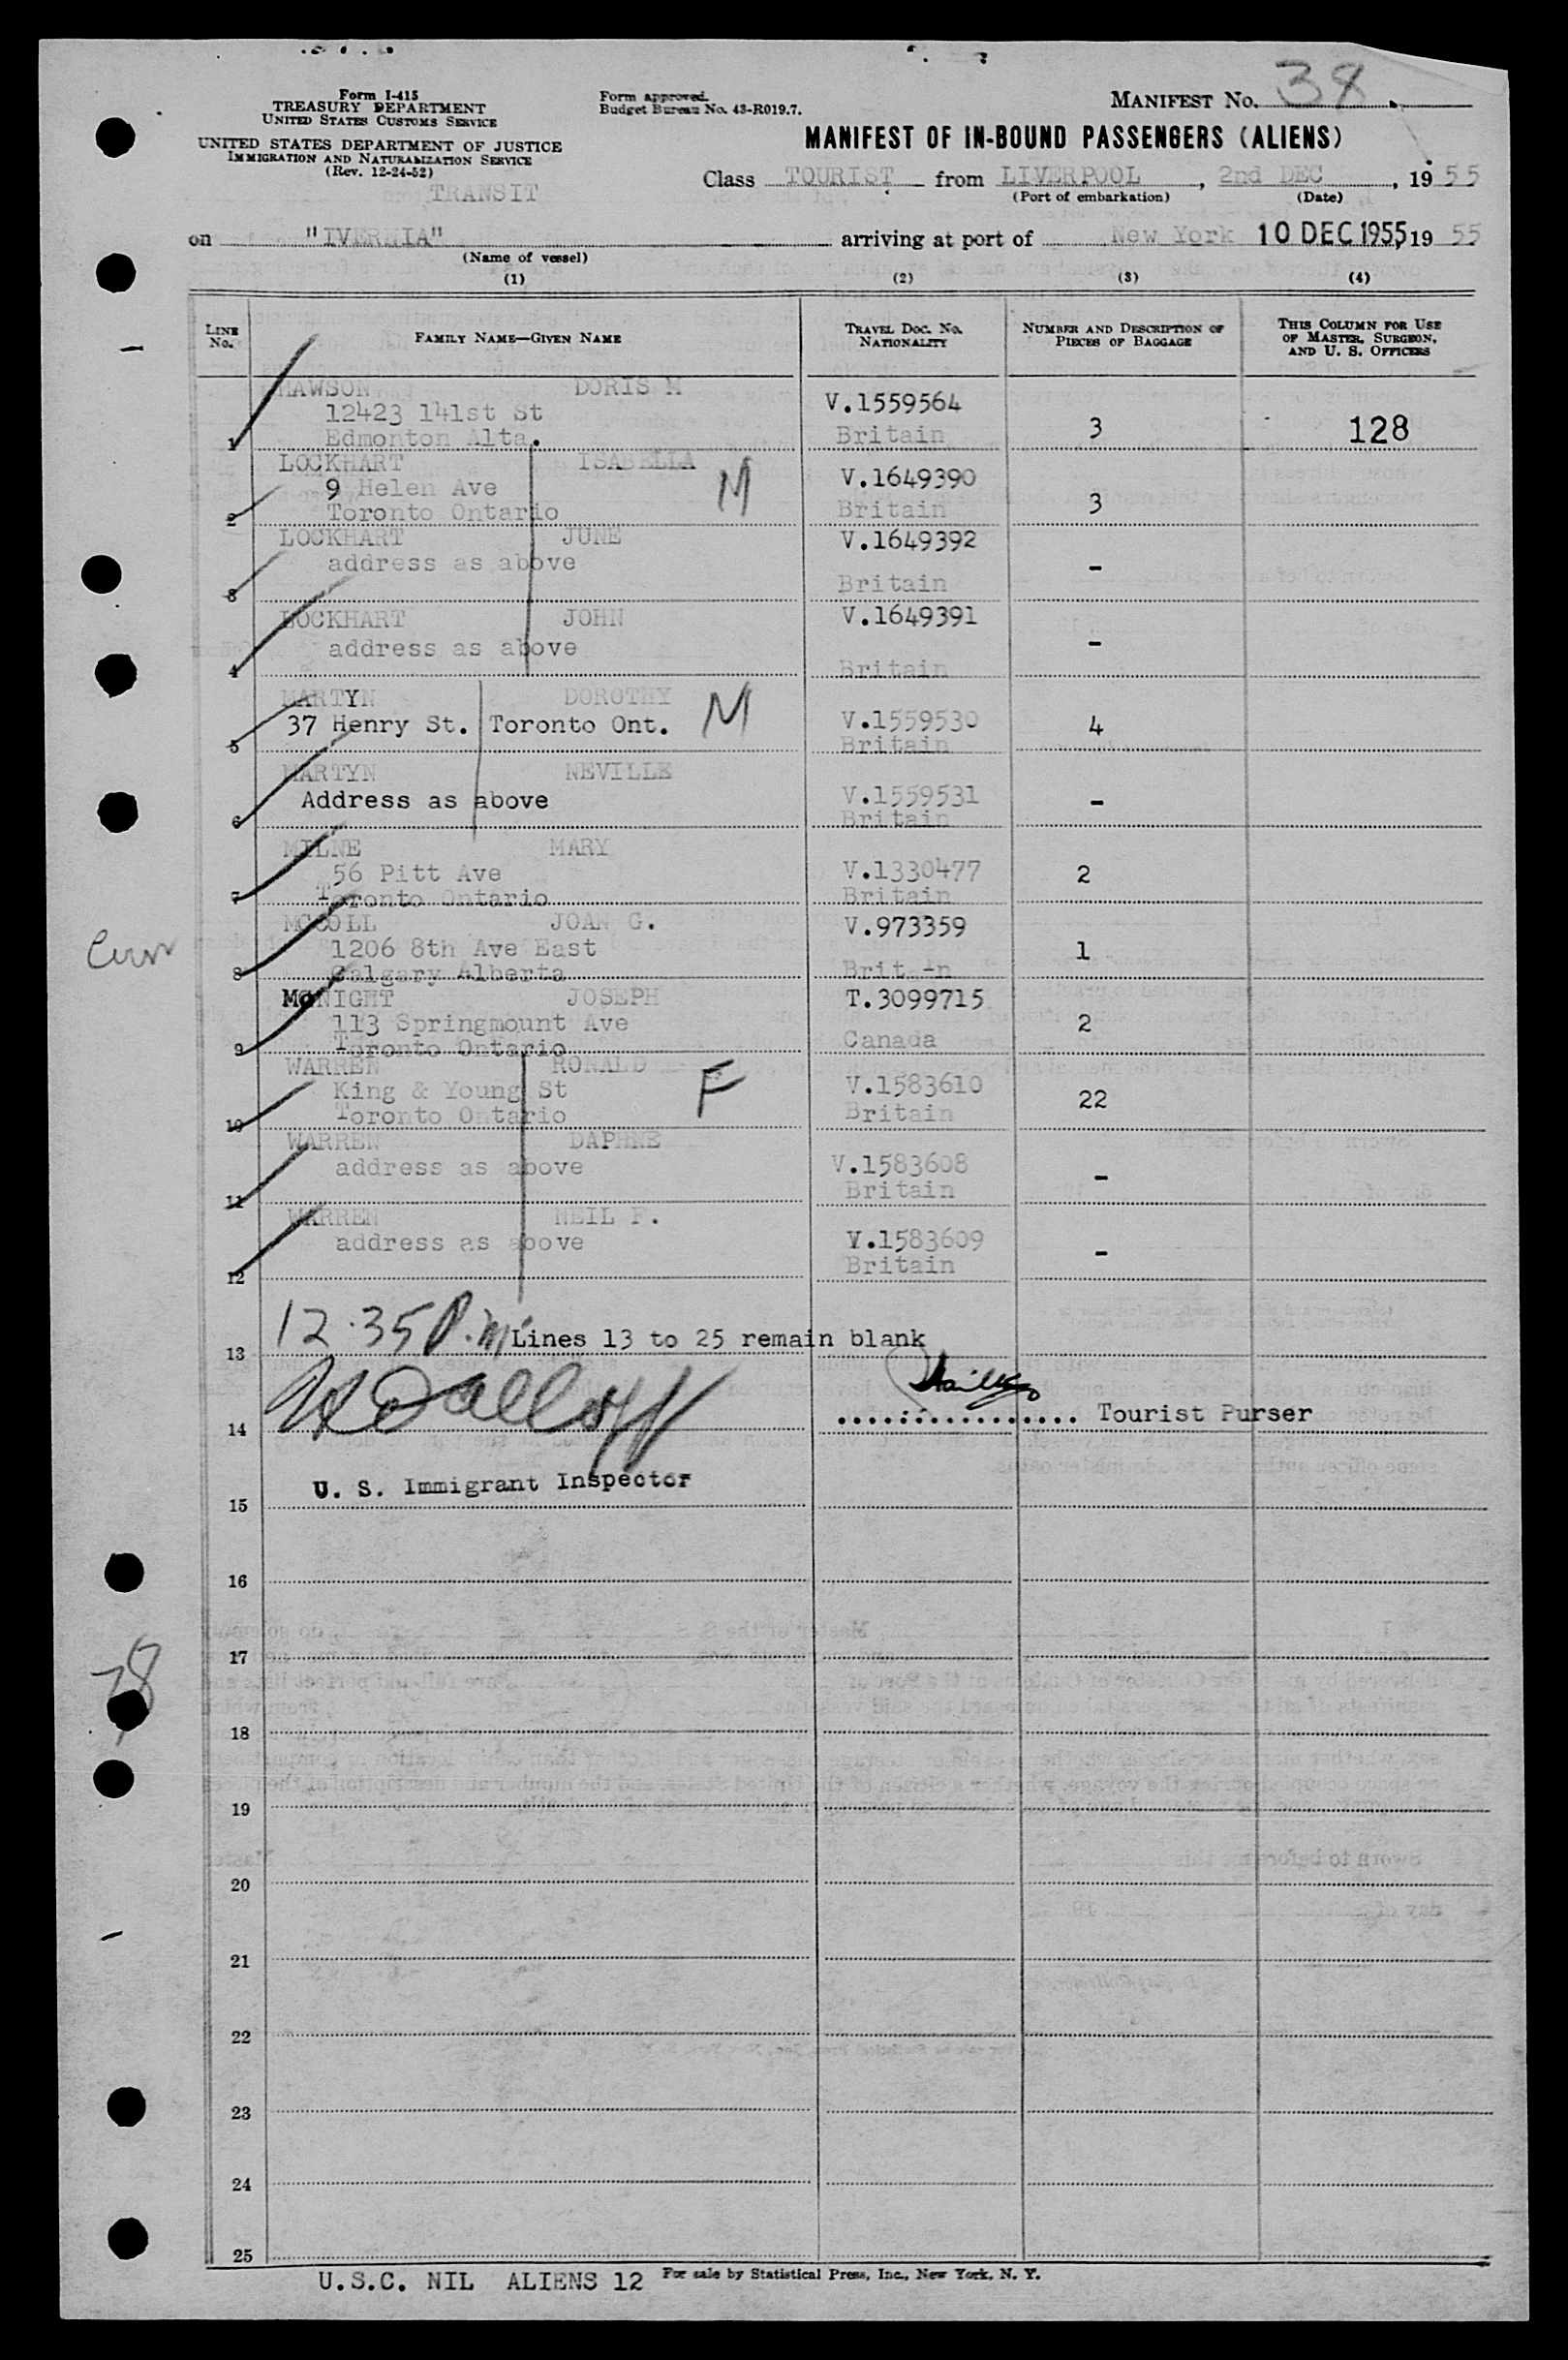 MANIFEST NO. 38
Form I-415
TREASURY DEPARTMENT
UNITED STATES CUSTOMS SERVICE
UNITED STATES DEPARTMENT OF JUSTICE
IMMIGRATION AND NATURALIZATION SERVICE
(Rev. 12-24-52)
TRANSIT
Form approved.
Budget Bureau No. 43-R019.7.
MANIFEST OF IN-BOUND PASSENGERS (ALIENS)
Class TOURIST from LIVERPOOL, 2nd DEC, 1955
(Port of embarkation) (Date)
on "IVERNIA" arriving at port of New York 10 DEC 1955, 1955
(Name of vessel)
(1) (2) (3) (4)
LINE No. FAMILY NAME—GIVEN NAME TRAVEL DOC. NO. NATIONALITY NUMBER AND DESCRIPTION OF PIECES OF BAGGAGE THIS COLUMN FOR USE OF MASTER, SURGEON, AND U. S. OFFICERS
DORIS M
12423 141st St V.1559564
1 Edmonton Alta. Britain 3 128
LOCKHART ISABELLA M V.1649390
9 Helen Ave
2 Toronto Ontario Britain 3
LOCKHART JUNE V.1649392
address as above -
3 Britain
LOCKHART JOHN V.1649391
address as above -
4 Britain
MARTYN DOROTHY M
37 Henry St. Toronto Ont. V.1559530 4
5 Britain
MARTYN NEVILLE
Address as above V.1559531 -
6 Britain
MILNE MARY
56 Pitt Ave V.1330477 2
7 Toronto Ontario Britain
MCCOLL JOAN G. V.973359
1206 8th Ave East 1
8 Calgary Alberta Brit.-n
McNIGHT JOSEPH T.3099715
113 Springmount Ave Canada 2
9 Toronto Ontario
WARREN RONALD F
King & Young St V.1583610 22
10 Toronto Ontario Britain
WARREN DAPHNE
address as above V.1583608 -
11 Britain
WARREN NEIL F.
address as above V.1583609 -
12 Britain
12.35 P.m. Lines 13 to 25 remain blank
13
14 ................. Tourist Purser
U. S. Immigrant Inspector
15
16
17
38
18
19
20
21
22
23
24
25
U.S.C. NIL ALIENS 12 For sale by Statistical Press, Inc., New York, N. Y.